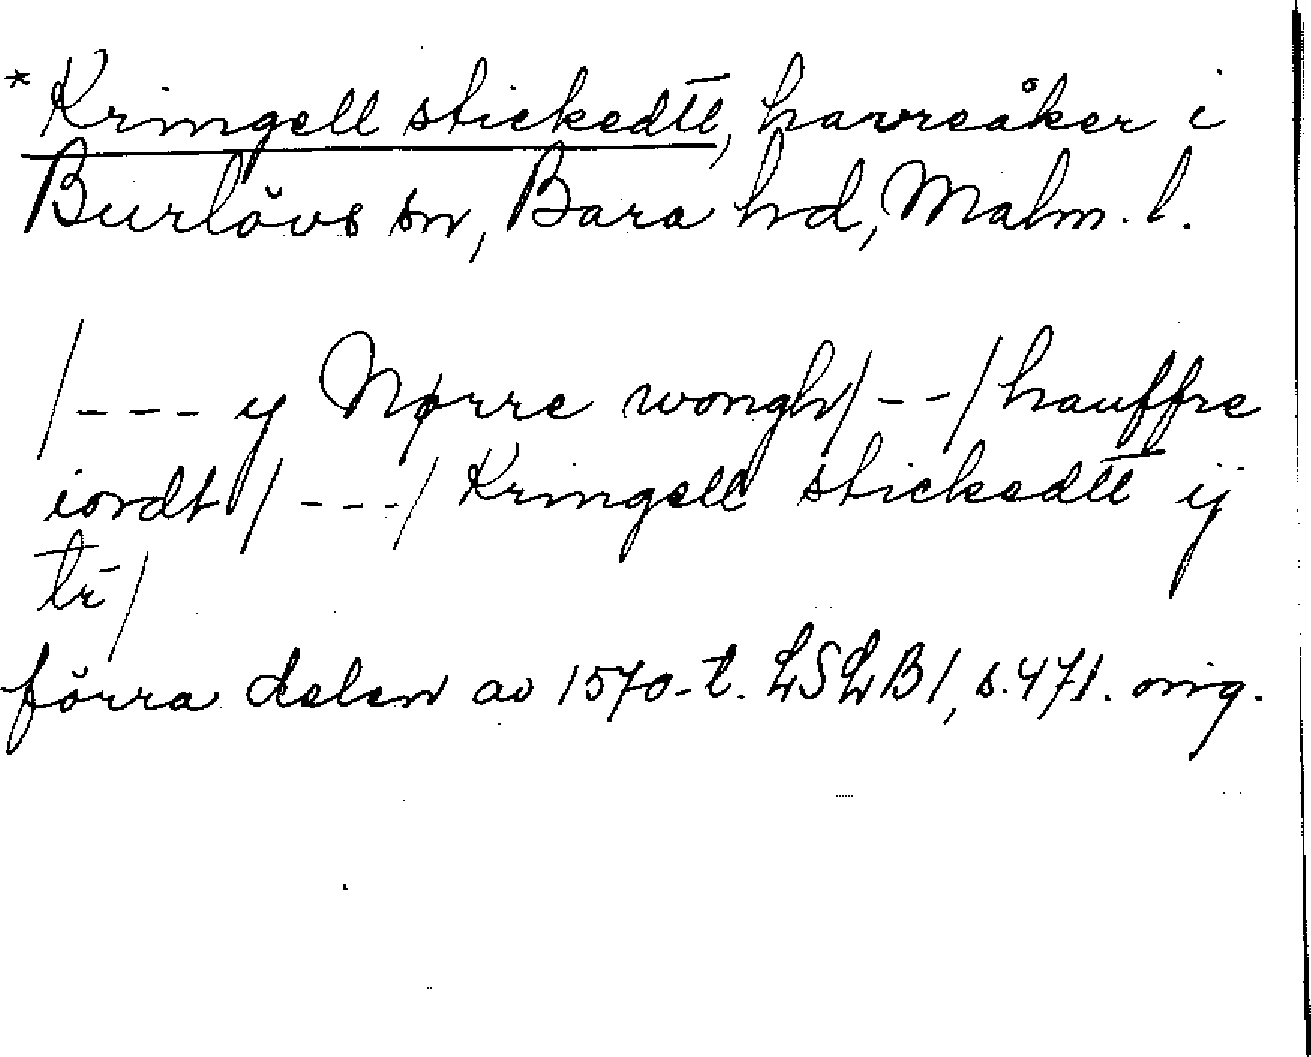 * Kringell stickedtt, havreåker i
Burlövs sn, Bara hd, Malm. l.
/--- y Nørre wongh/--/hauffre
iordt/---/Kringell stickedtt ij
tr̄/
förra delen av 1570-t. LSLB1, s. 471. orig.